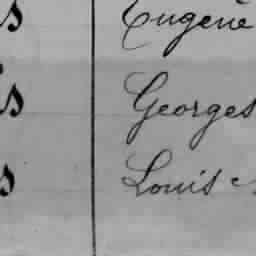 s Eugène
s Georges
s Louis